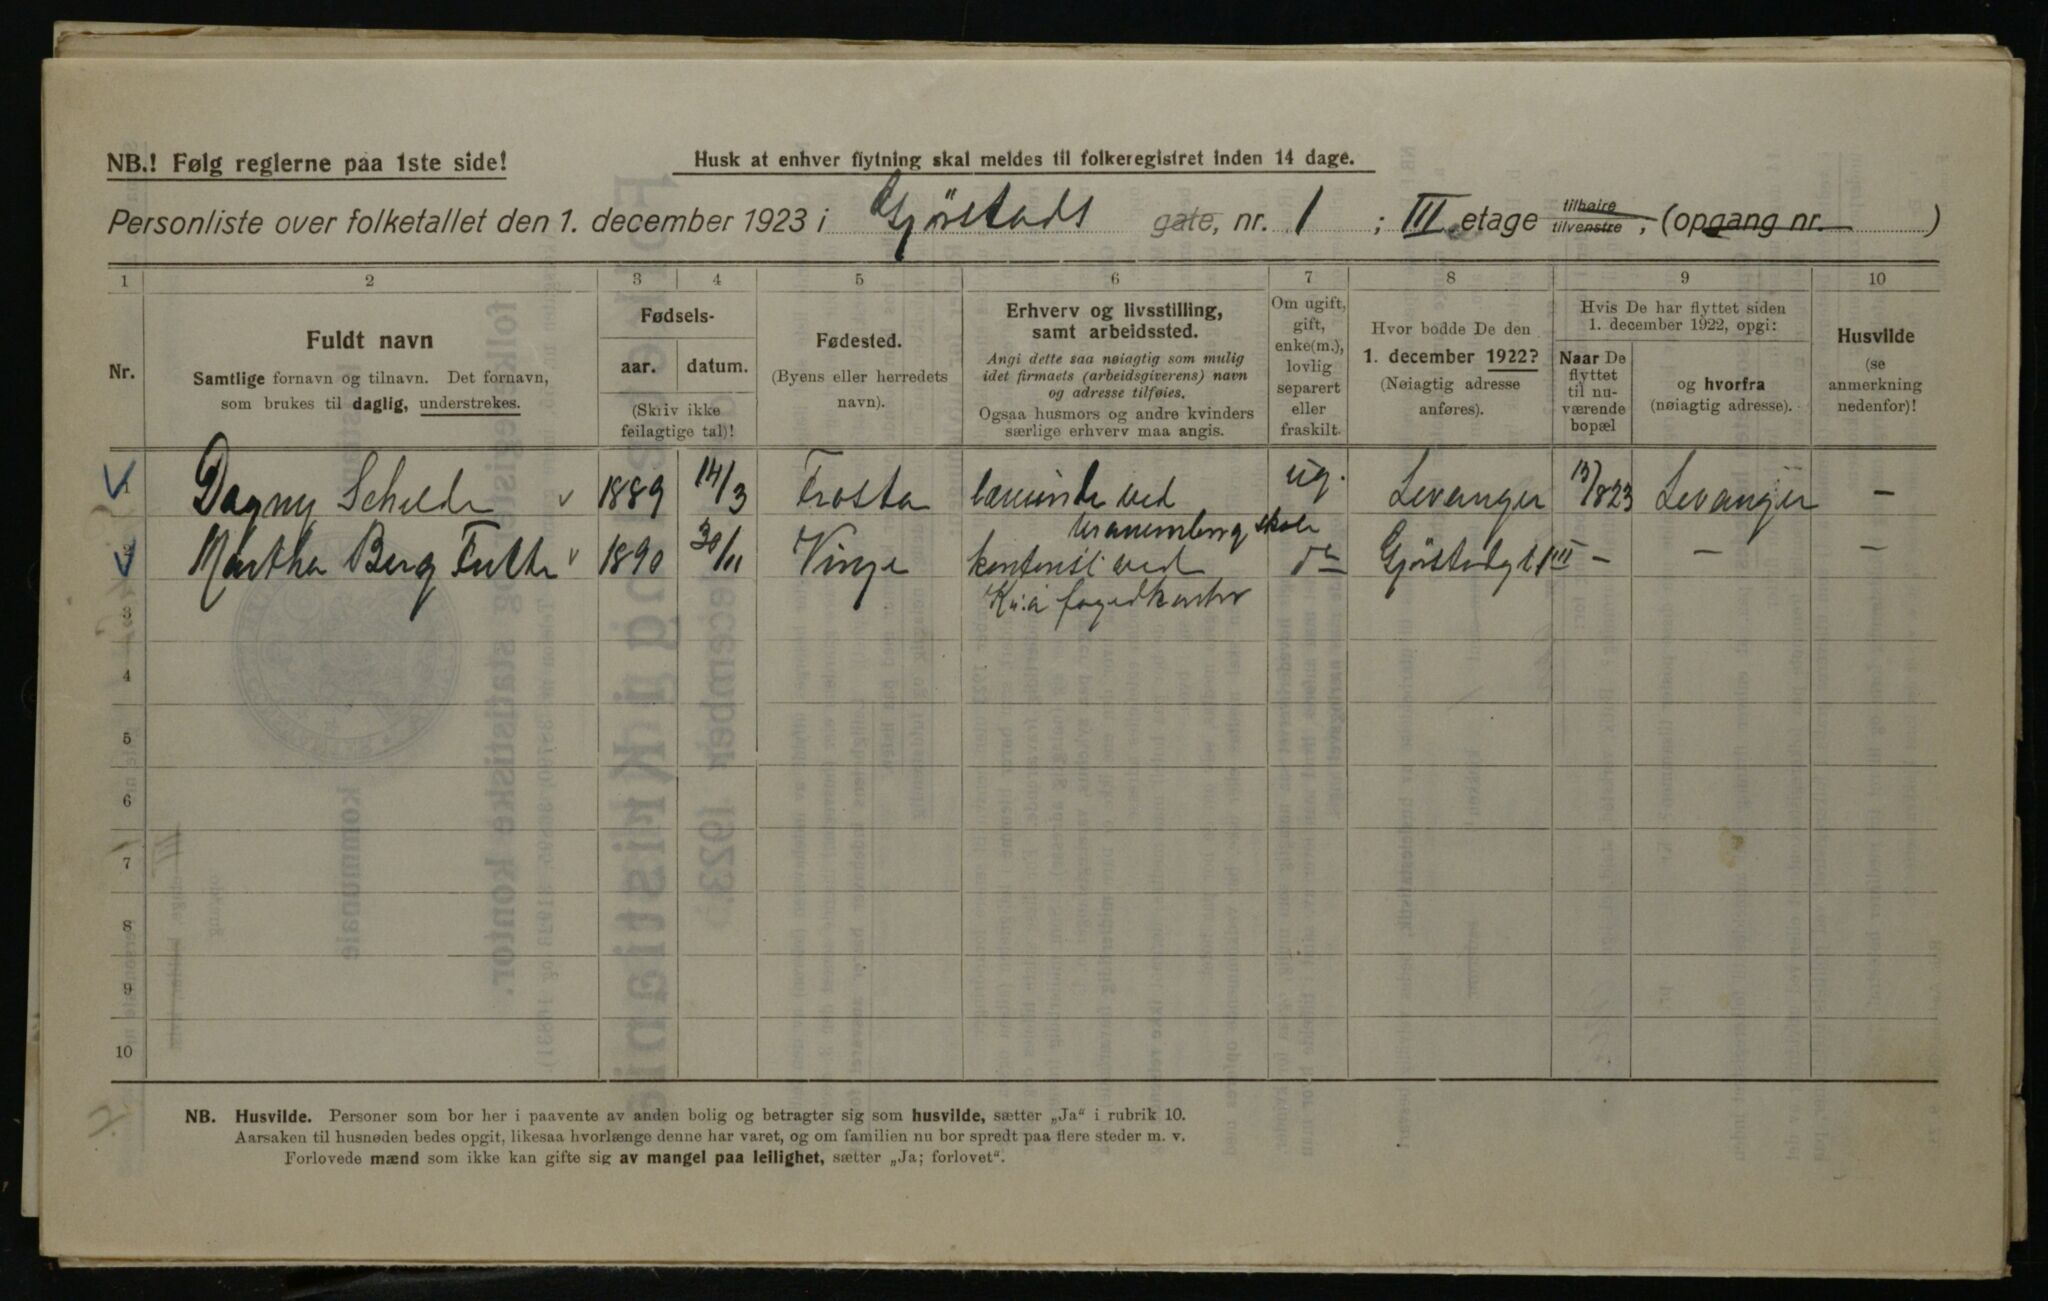 NB.! Følg reglerne paa 1ste side!
Husk at enhver flytning skal meldes til folkeregistret inden 14 dage.
Personliste over folketallet den 1. december 1923 i Gjørstads gate, nr. 1 ; III etage tilhøire tilvenstre, (opgang nr. )
1 2 3 4 5 6 7 8 9 10
Nr.
Fuldt navn
Samtlige fornavn og tilnavn. Det fornavn,
som brukes til daglig, understrekes.
Fødsels-
aar. datum.
(Skriv ikke
feilagtige tal)!
Fødested.
(Byens eller herredets
navn).
Erhverv og livsstilling,
samt arbeidssted.
Angi dette saa nøiagtig som mulig
idet firmaets (arbeidsgiverens) navn
og adresse tilføies.
Ogsaa husmors og andre kvinders
særlige erhverv maa angis.
Om ugift,
gift,
enke(m.),
lovlig
separert
eller
fraskilt.
Hvor bodde De den
1. december 1922?
(Nøiagtig adresse
anføres).
Hvis De har flyttet siden
1. december 1922, opgi:
Naar De
flyttet
til nu-
værende
bopæl
og hvorfra
(nøiagtig adresse).
Husvilde
(se
anmerkning
nedenfor)!
1 Dagny 1889 14/3 Frosta lærerinde ved ug. Levanger 15/8 23 Levanger –
Uranienborg skole
2 Martha Berg 1890 30/11 Vinge kontorist ved do Gjørstadgt 1 III – – –
Kr.a fogedkontor
3
4
5
6
7
8
9
10
NB. Husvilde. Personer som bor her i paavente av anden bolig og betragter sig som husvilde, sætter „Ja“ i rubrik 10.
Aarsaken til husnøden bedes opgit, likesaa hvorlænge denne har varet, og om familien nu bor spredt paa flere steder m. v.
Forlovede mænd som ikke kan gifte sig av mangel paa leilighet, sætter „Ja; forlovet“.